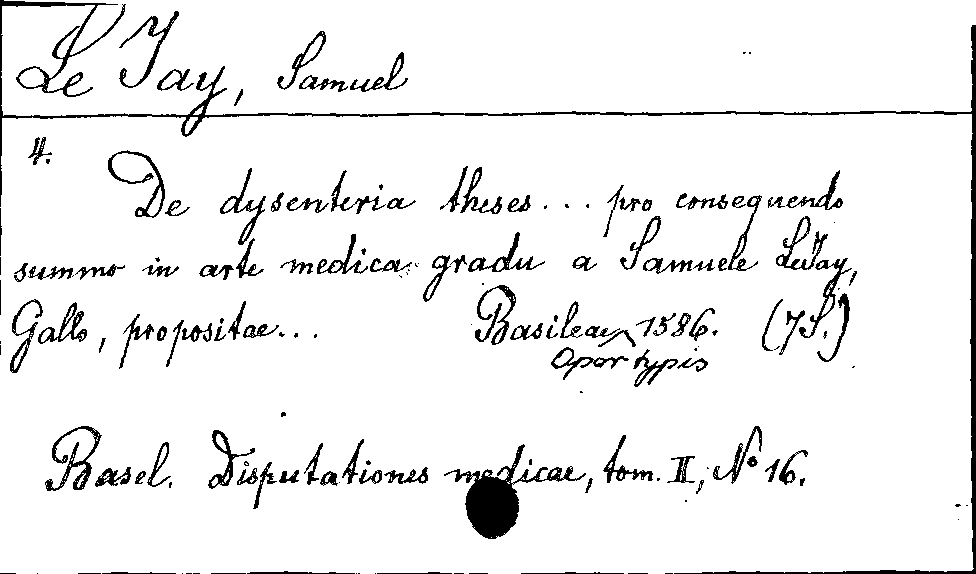 Le Jay, Samuel
4.
De dysenteria theses... pro consequendo
summo in arte medica gradu a Samuele LeJay,
Gallo, propositae... Basileae 1586. (7 S.)
Opor typis
Basel. Disputationes medicae, tom. II, No 16.